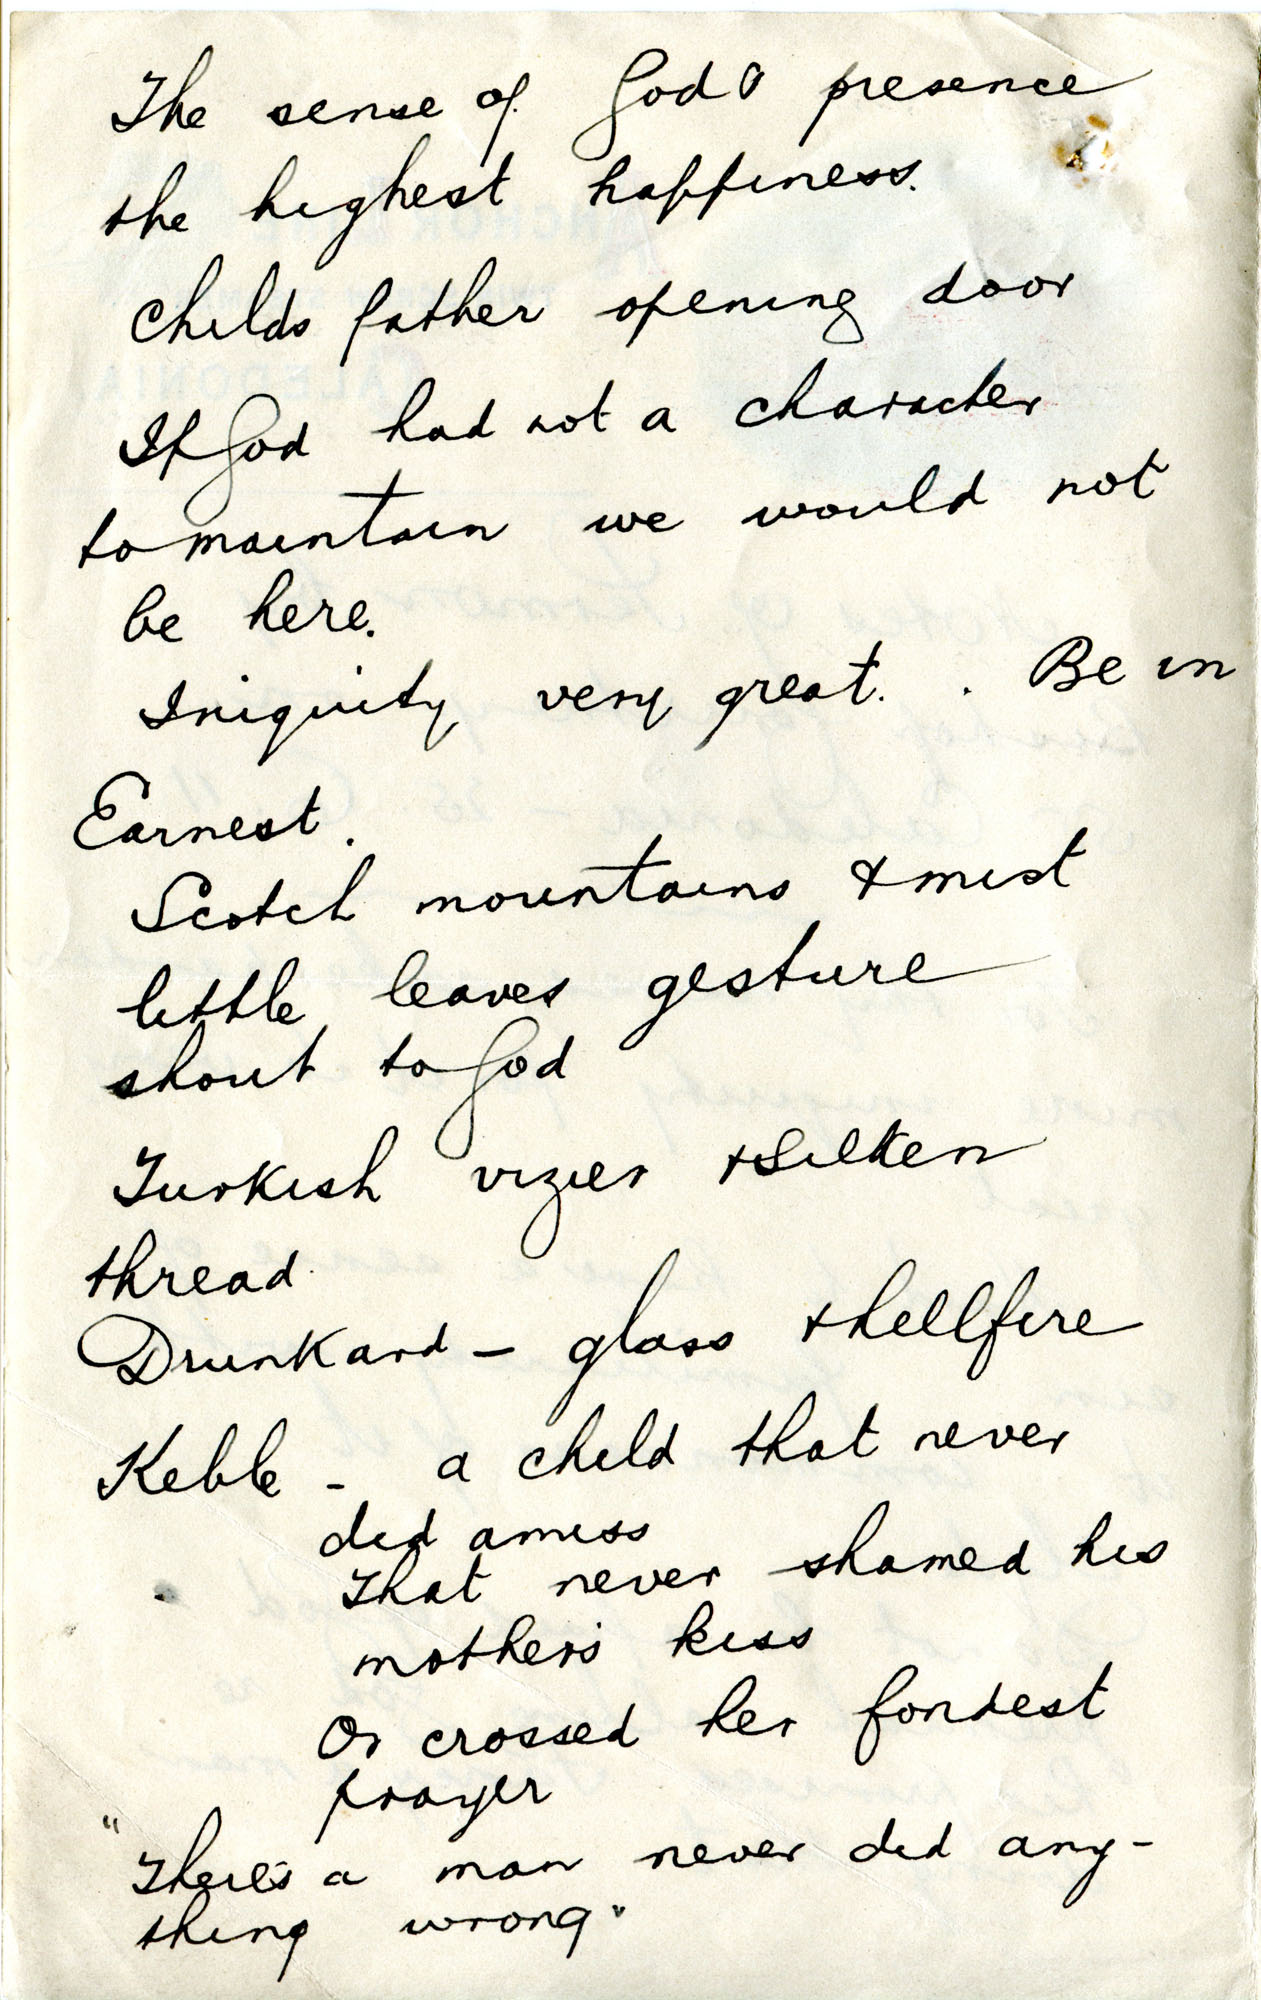 The sense of God's presence
the highest happiness.
Childs father opening door
If God had not a character
to maintain we would not
be here.
Iniquity very great. . Be in
Earnest.
Scotch mountains & mist
little leaves gesture
shout to God
Turkish vizier & Silken
thread.
Drunkard – glass & hellfire
Keble – a child that never
did amiss
That never shamed his
mother's kiss
Or crossed her fondest
prayer
"There's a man never did any-
thing wrong"